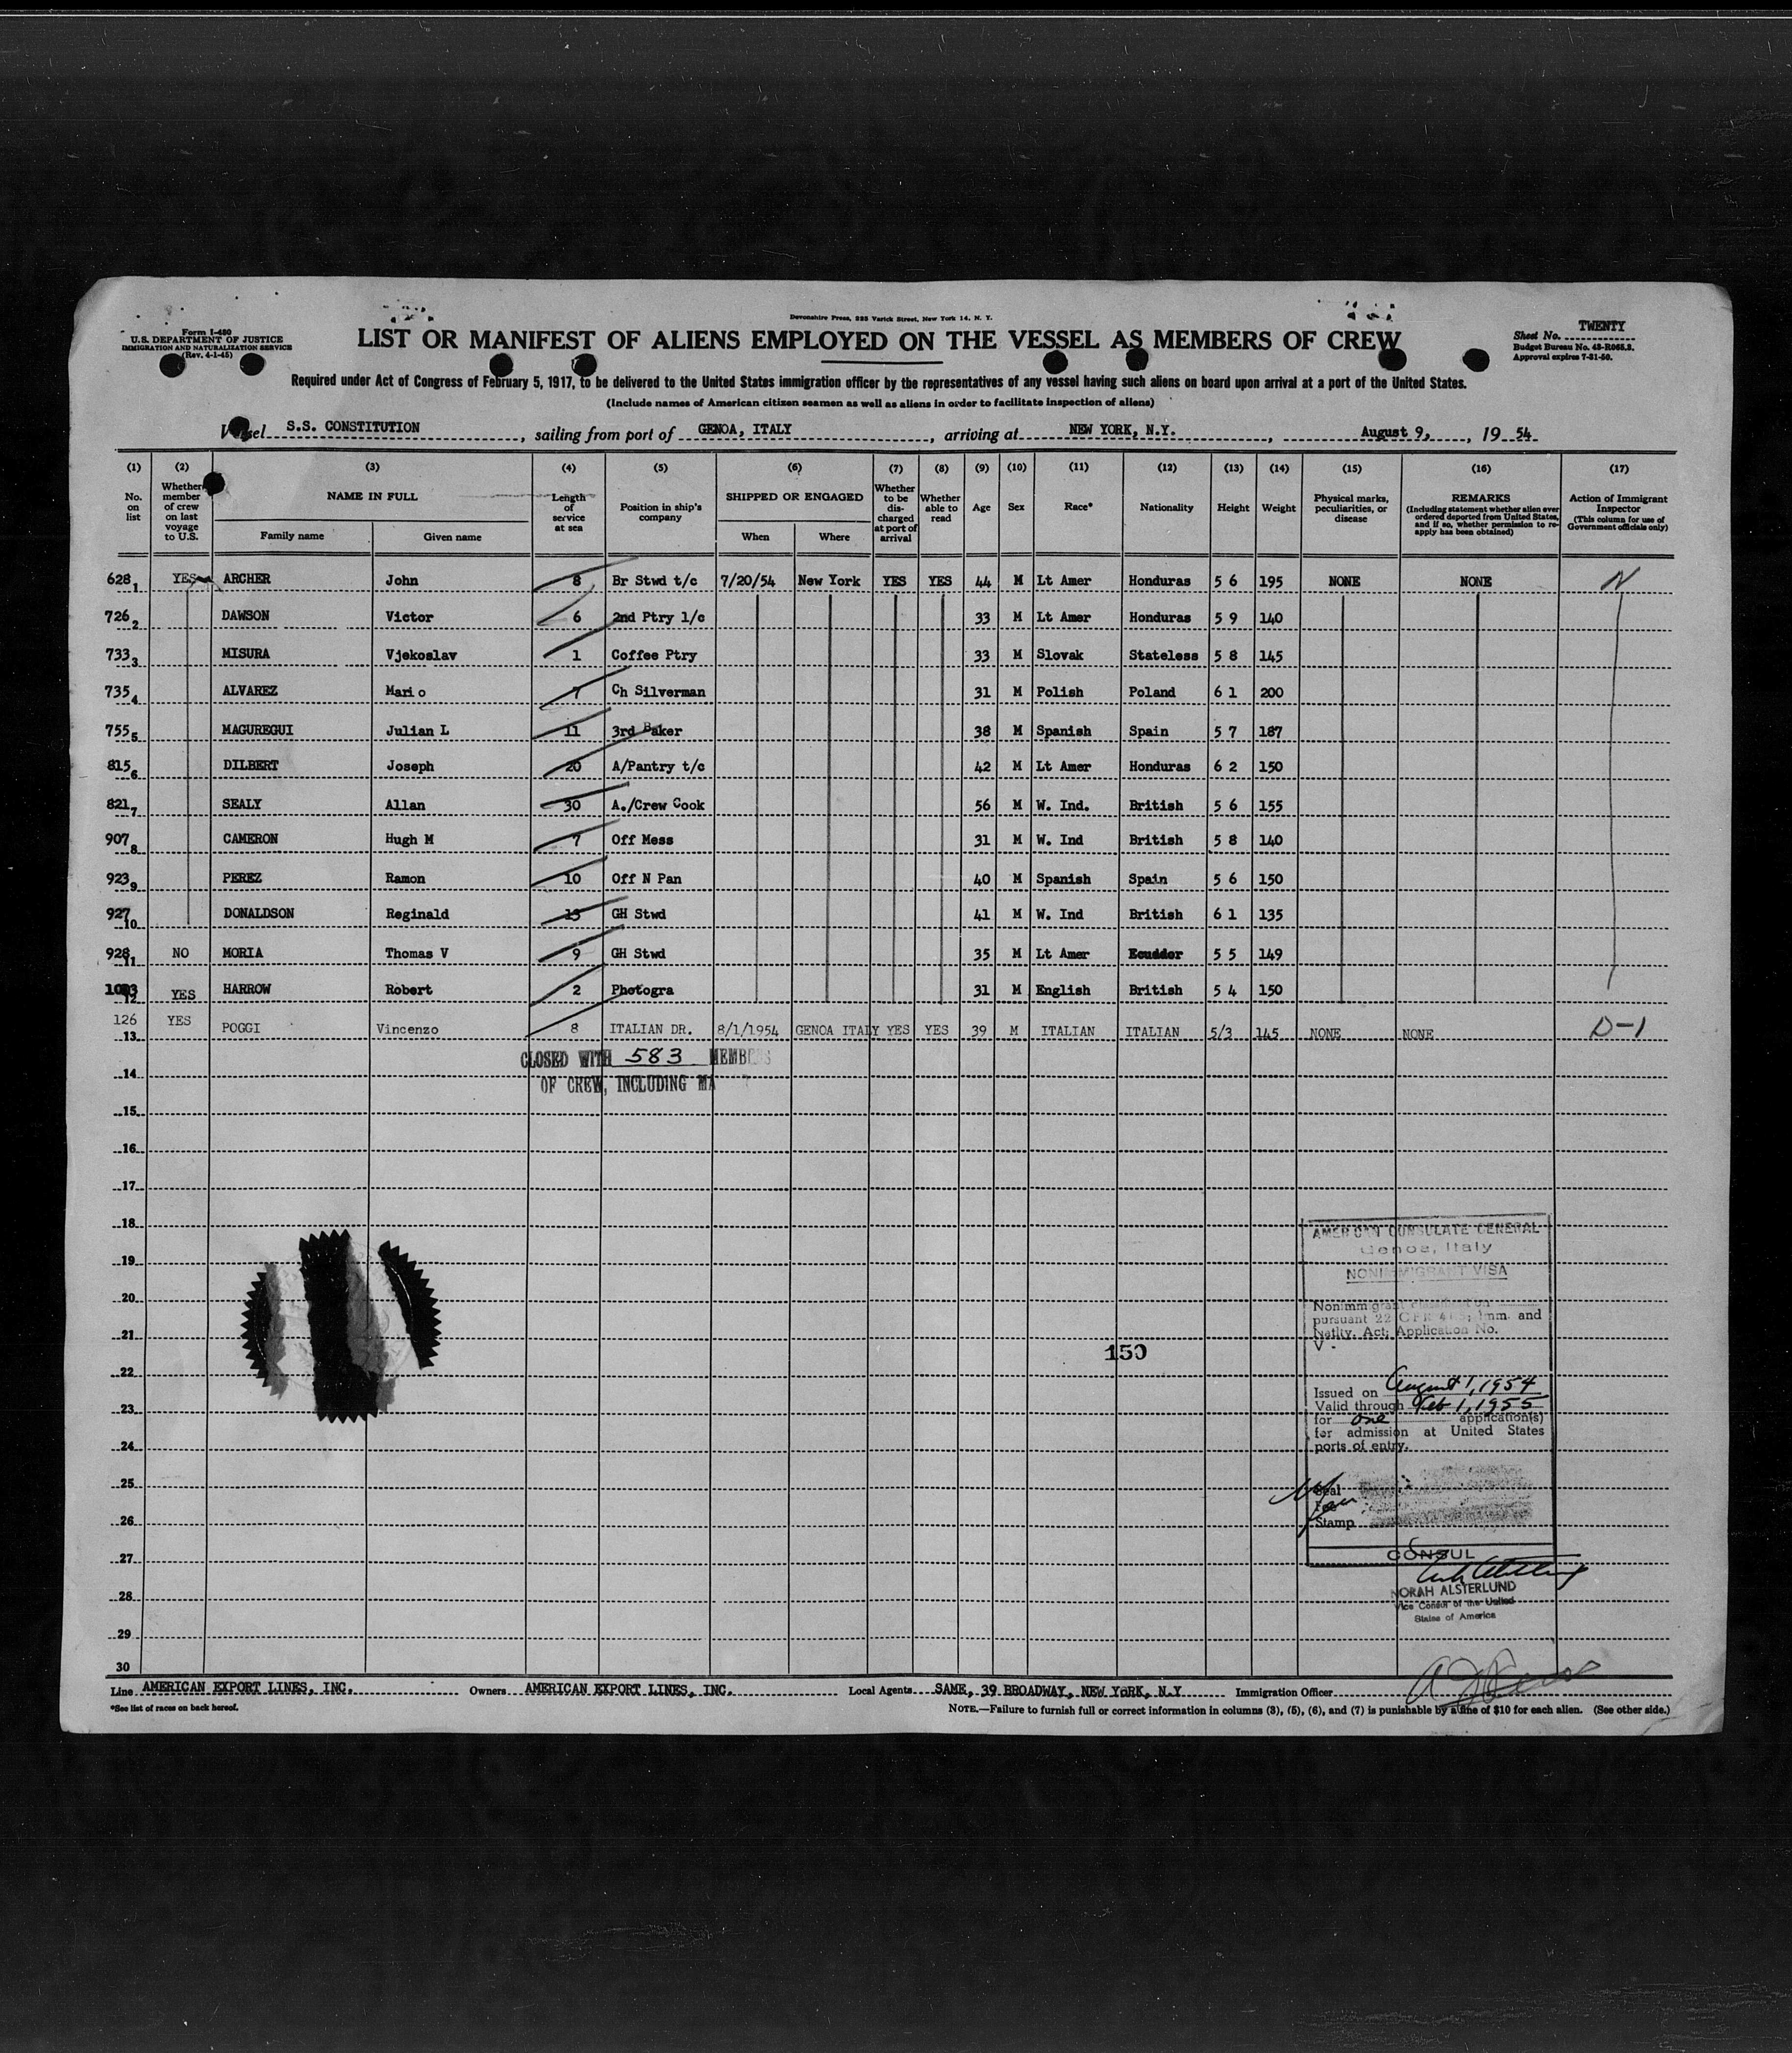 Form I-480
U.S. DEPARTMENT OF JUSTICE
IMMIGRATION AND NATURALIZATION SERVICE
(Rev. 4-1-45)
Devonshire Press, 225 Varick Street, New York 14, N. Y.
LIST OR MANIFEST OF ALIENS EMPLOYED ON THE VESSEL AS MEMBERS OF CREW
Sheet No. TWENTY
Budget Bureau No. 43-R065.3.
Approval expires 7-31-50.
Required under Act of Congress of February 5, 1917, to be delivered to the United States immigration officer by the representatives of any vessel having such aliens on board upon arrival at a port of the United States.
(Include names of American citizen seamen as well as aliens in order to facilitate inspection of aliens)
Vessel S.S. CONSTITUTION, sailing from port of GENOA, ITALY, arriving at NEW YORK, N.Y., August 9, 19 54
(1) (2) (3) (4) (5) (6) (7) (8) (9) (10) (11) (12) (13) (14) (15) (16) (17)
No. on list
Whether member of crew on last voyage to U.S.
NAME IN FULL
Family name Given name
Length of service at sea
Position in ship's company
SHIPPED OR ENGAGED
When Where
Whether to be discharged at port of arrival
Whether able to read
Age
Sex
Race*
Nationality
Height
Weight
Physical marks, peculiarities, or disease
REMARKS
(Including statement whether alien ever ordered deported from United States, and if so, whether permission to reapply has been obtained)
Action of Immigrant Inspector
(This column for use of Government officials only)
628 1 YES ARCHER John 8 Br Stwd t/c 7/20/54 New York YES YES 44 M Lt Amer Honduras 5 6 195 NONE NONE N
726 2 DAWSON Victor 6 2nd Ptry l/c 33 M Lt Amer Honduras 5 9 140
733 3 MISURA Vjekoslav 1 Coffee Ptry 33 M Slovak Stateless 5 8 145
735 4 ALVAREZ Mario 7 Ch Silverman 31 M Polish Poland 6 1 200
755 5 MAGUREGUI Julian L 11 3rd Baker 38 M Spanish Spain 5 7 187
815 6 DILBERT Joseph 20 A/Pantry t/c 42 M Lt Amer Honduras 6 2 150
821 7 SEALY Allan 30 A./Crew Cook 56 M W. Ind. British 5 6 155
907 8 CAMERON Hugh M 7 Off Mess 31 M W. Ind British 5 8 140
923 9 PEREZ Ramon 10 Off N Pan 40 M Spanish Spain 5 6 150
927 10 DONALDSON Reginald 13 GH Stwd 41 M W. Ind British 6 1 135
928 11 NO MORIA Thomas V 9 GH Stwd 35 M Lt Amer Ecuador 5 5 149
12 YES HARROW Robert 2 Photogra 31 M English British 5 4 150
126 13 YES POGGI Vincenzo 8 ITALIAN DR. 8/1/1954 GENOA ITALY YES YES 39 M ITALIAN ITALIAN 5/3 145 NONE NONE D-1
CLOSED WITH 583 MEMBERS
OF CREW, INCLUDING MA
14
15
16
17
18
19
20
21
22
23
24
25
26
27
28
29
30
150
AMERICAN CONSULATE GENERAL
Genoa, Italy
NONIMMIGRANT VISA
Nonimmigrant classification
pursuant 22 CFR Imm. and
Natlty. Act; Application No.
V -
Issued on August 1, 1954
Valid through Feb 1, 1955
for one application(s)
for admission at United States
ports of entry.
Seal
Fee
Stamp
CONSUL
NORAH ALSTERLUND
Vice Consul of the United
States of America
Line AMERICAN EXPORT LINES, INC. Owners AMERICAN EXPORT LINES, INC. Local Agents SAME, 39 BROADWAY, NEW YORK, N.Y Immigration Officer
*See list of races on back hereof.
NOTE.—Failure to furnish full or correct information in columns (3), (5), (6), and (7) is punishable by a fine of $10 for each alien. (See other side.)